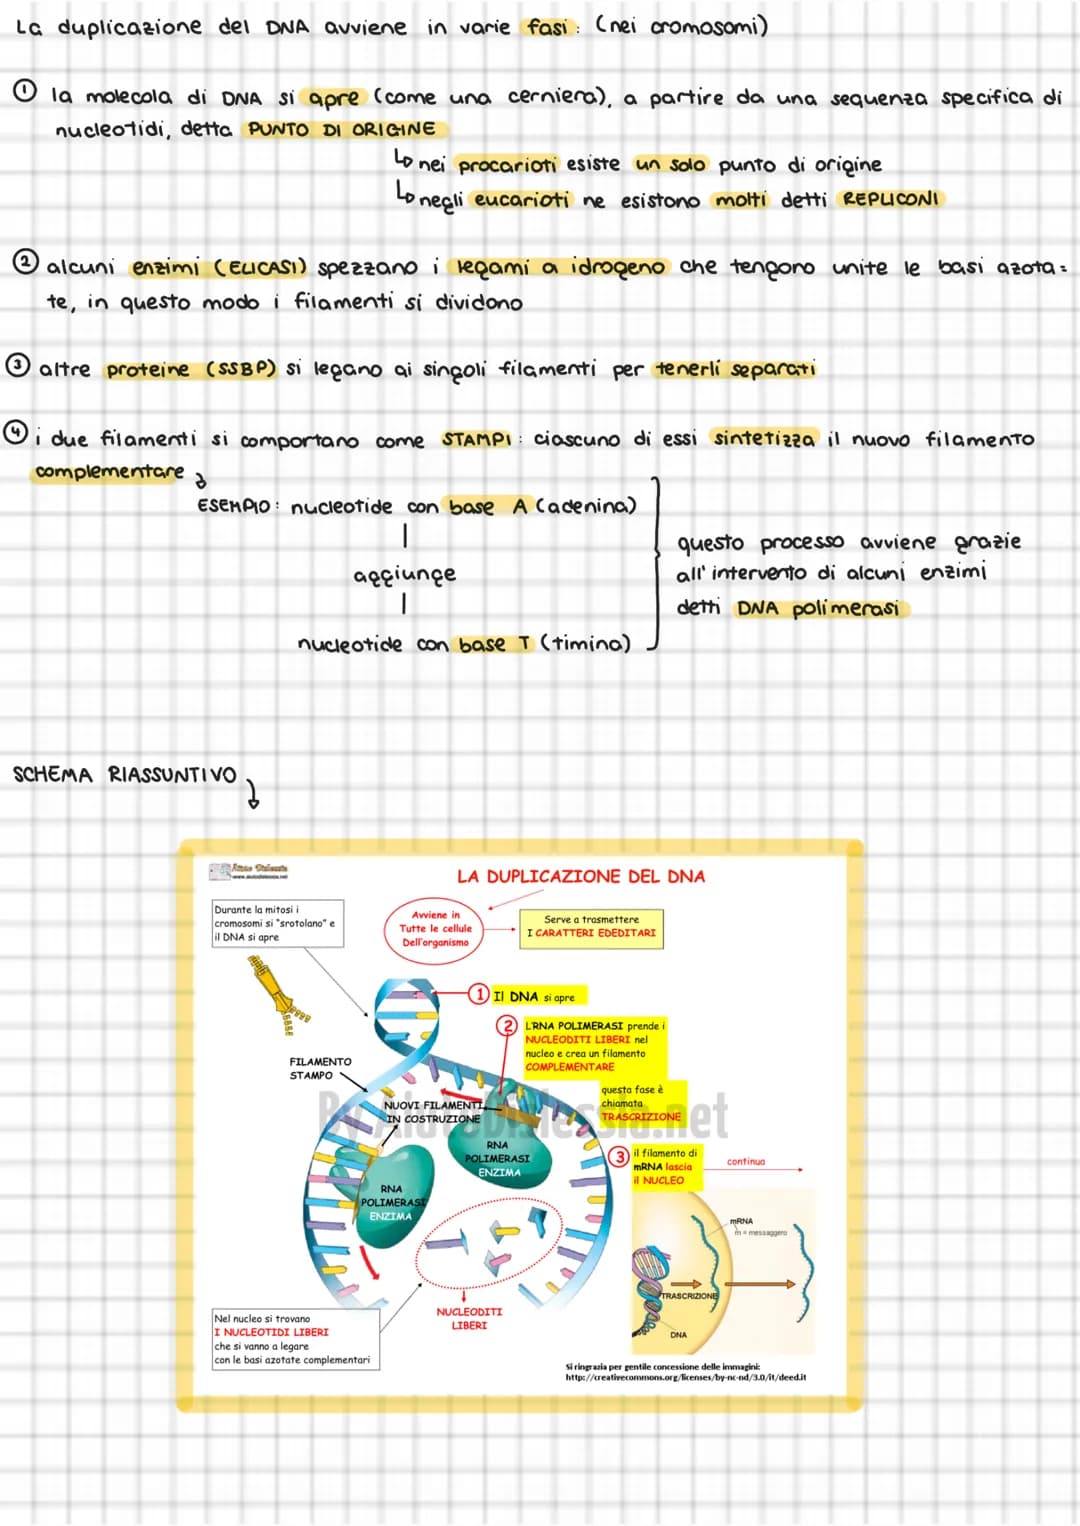 La duplicazione del DNA avviene in varie fasi: (nei cromosomi)
① la molecola di DNA si apre (come una cerniera), a partire da una sequenza specifica di
nucleotidi, detta PUNTO DI ORIGINE
↳ nei procarioti esiste un solo punto di origine
↳ negli eucarioti ne esistono molti detti REPLICONI
② alcuni enzimi (ELICASI) spezzano i legami a idrogeno che tengono unite le basi azota=
te, in questo modo i filamenti si dividono
③ altre proteine (SSBP) si legano ai singoli filamenti per tenerli separati
④ i due filamenti si comportano come STAMPI: ciascuno di essi sintetizza il nuovo filamento
complementare
ESEMPIO: nucleotide con base A (adenina)
aggiunge
nucleotide con base T (timina)
questo processo avviene grazie
all'intervento di alcuni enzimi
detti DNA polimerasi
SCHEMA RIASSUNTIVO
Aiuto Dislessia
www.aiutodislessia.net
LA DUPLICAZIONE DEL DNA
Durante la mitosi i
cromosomi si "srotolano" e
il DNA si apre
Avviene in
Tutte le cellule
Dell'organismo
Serve a trasmettere
I CARATTERI EDEDITARI
1 Il DNA si apre
2 L'RNA POLIMERASI prende i
NUCLEODITI LIBERI nel
nucleo e crea un filamento
COMPLEMENTARE
questa fase è
chiamata
TRASCRIZIONE
FILAMENTO
STAMPO
NUOVI FILAMENTI
IN COSTRUZIONE
By AiutoDislessia.net
RNA
POLIMERASI
ENZIMA
RNA
POLIMERASI
ENZIMA
3 il filamento di
mRNA lascia
il NUCLEO
continua
mRNA
m = messaggero
TRASCRIZIONE
DNA
NUCLEODITI
LIBERI
Nel nucleo si trovano
I NUCLEOTIDI LIBERI
che si vanno a legare
con le basi azotate complementari
Si ringrazia per gentile concessione delle immagini:
http://creativecommons.org/licenses/by-nc-nd/3.0/it/deed.it